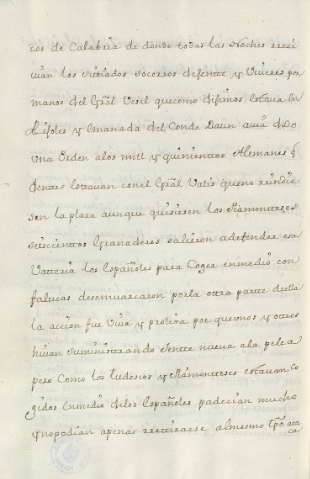 cos de Calabria de donde todas las Noches reci
uian los sitiados socorsos de fente y Viueres por
manos del Gral Vesel que como difimos estaua en
Napoles y emanada del Conde Daun auia dado
una orden alos mill y quinientos Alemanes q
dentro estauan con el Gral Vatis que no rindie
sen la plaza aunque quisiesen los Piamonteses
seiscientos Granaderos salieron a defender esa
Vatteria los Españoles para Coger en medio con
falucas desemuarcaron por la otra partte de ella
la accion fue Viua y prolixa por que unos y otros
hiuan suministrando Jente nueua ala pelea
pero Como los tudescos y Piamonteses estauan co
gidos en medio de los Españoles padecian mucho
y no podian apenas retirarse al mesmo tpo